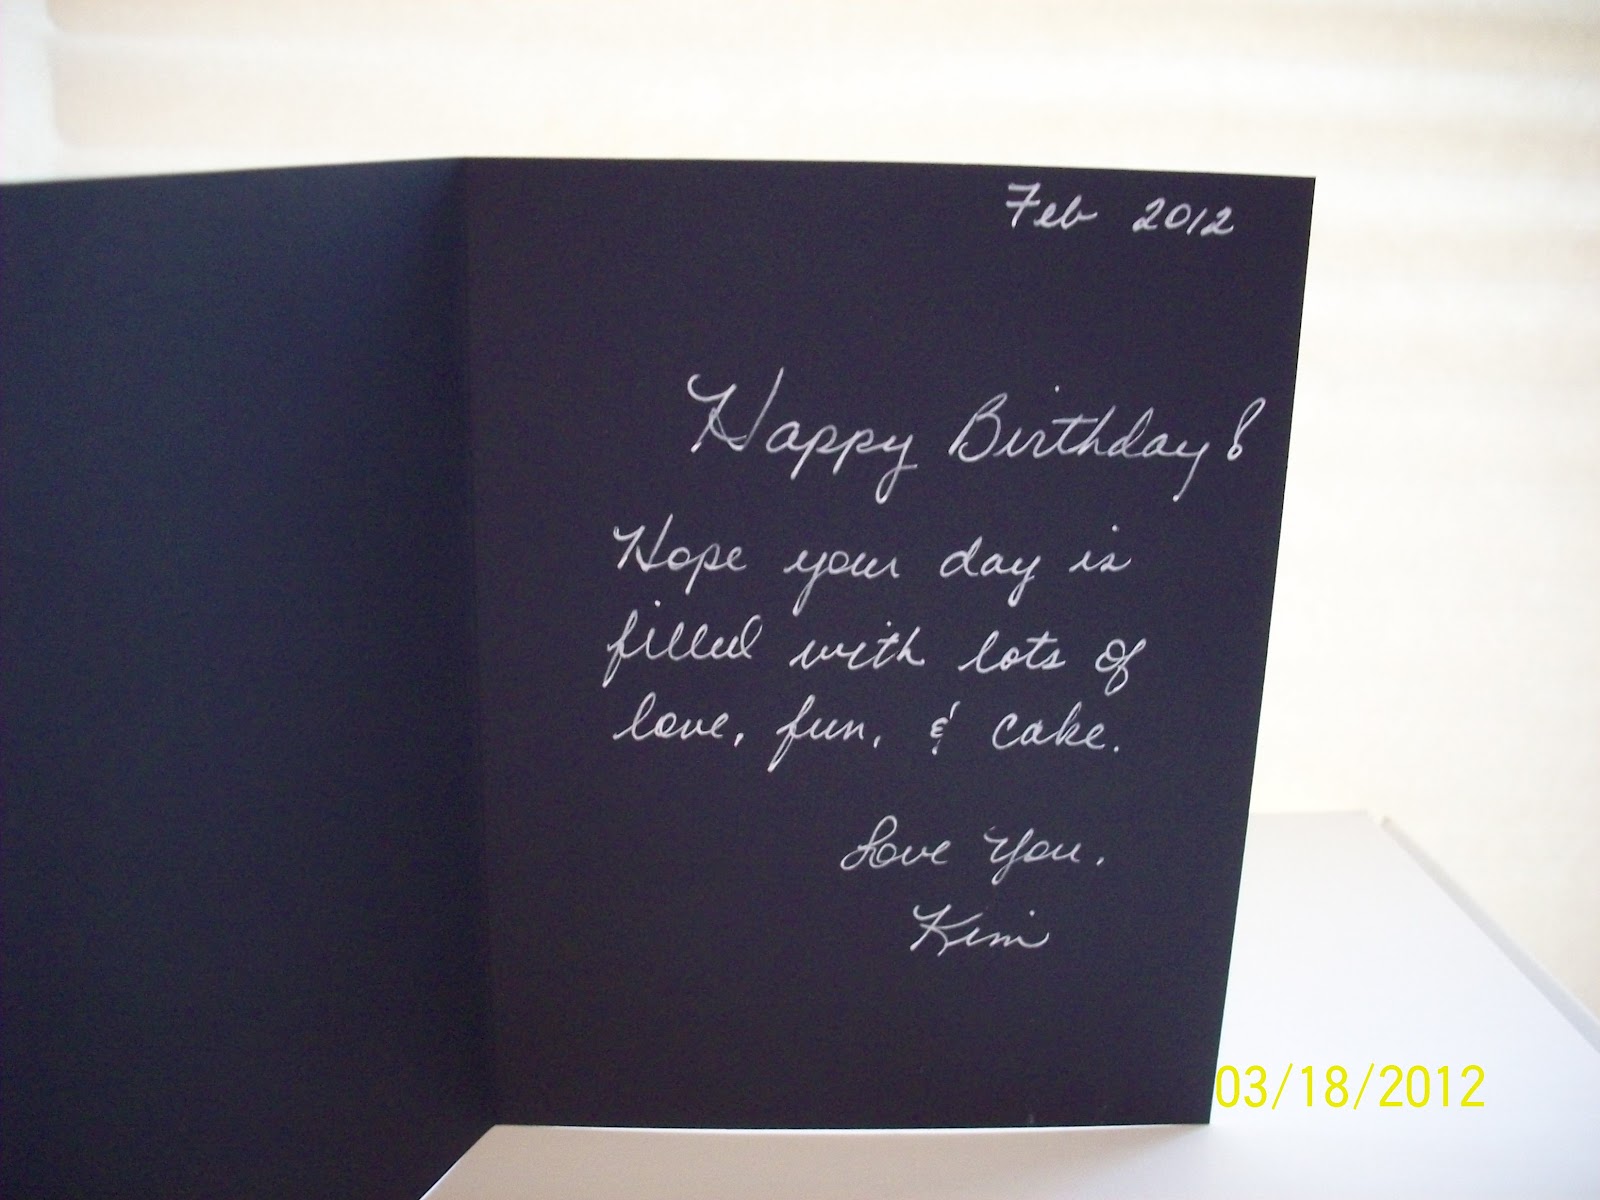 Feb 2012
Happy Birthday!
Hope your day is
filled with lots of
love, fun, & cake.
Love You,
Kim
03/18/2012